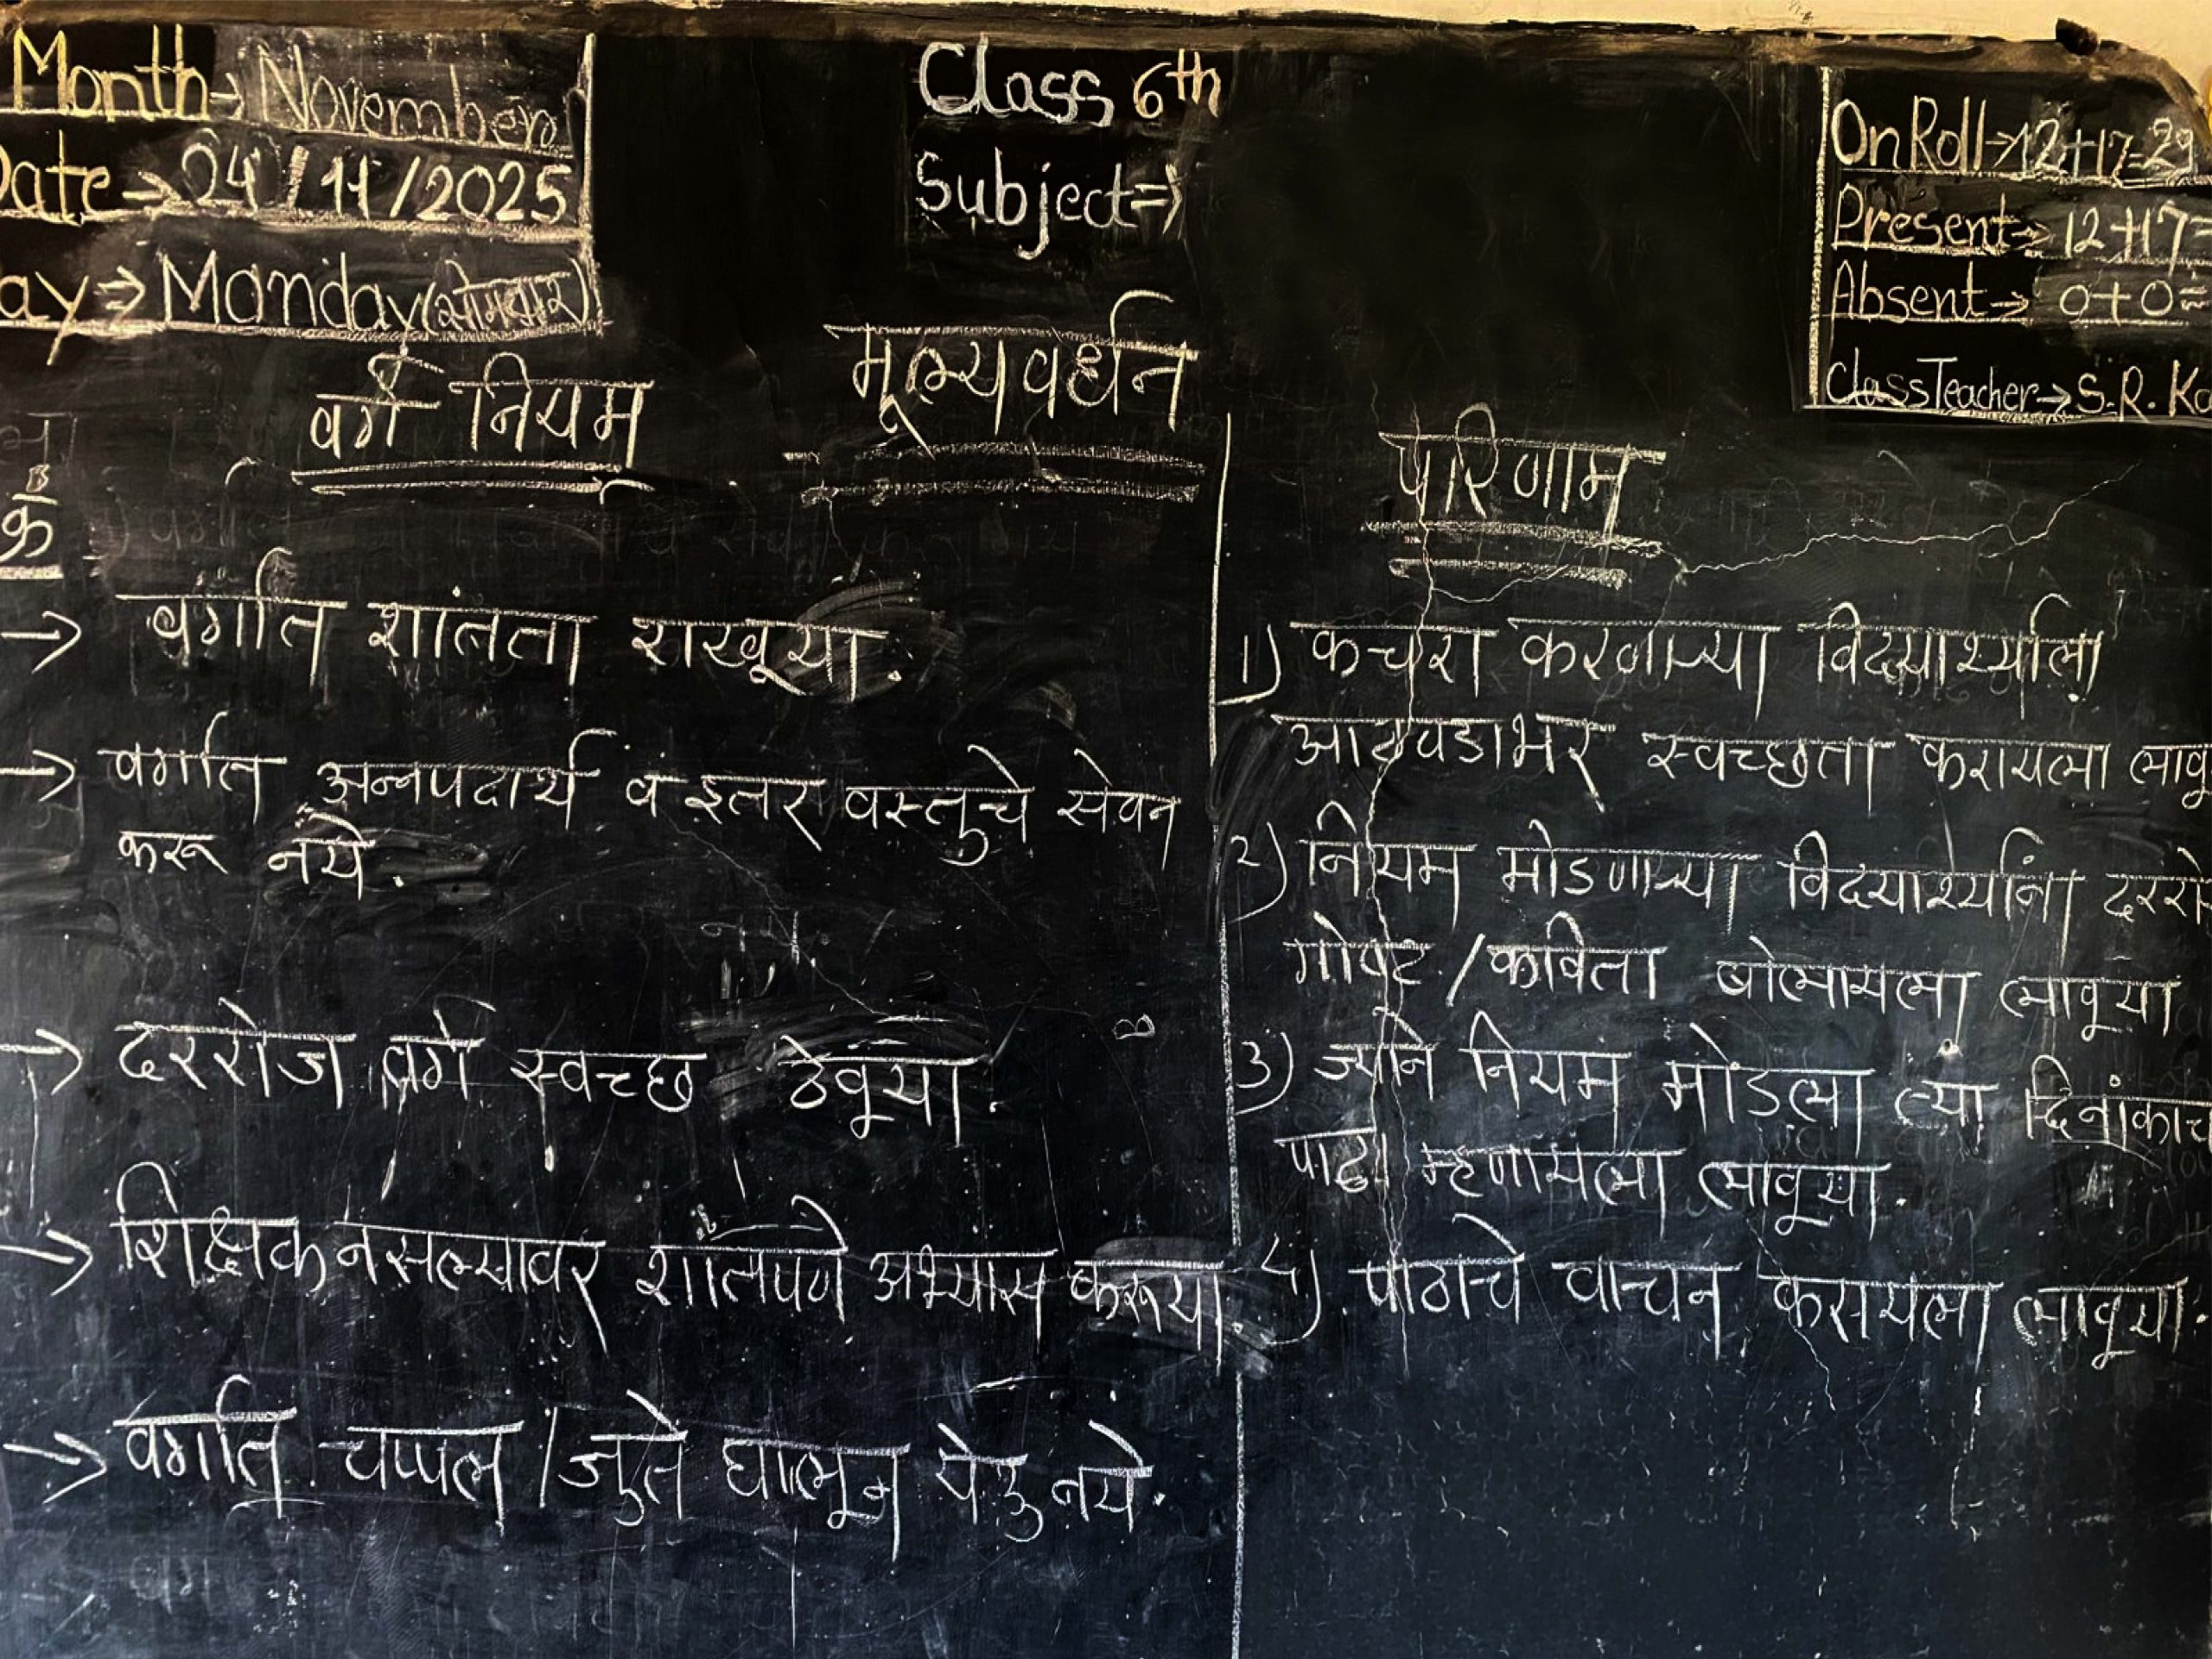 Month→ November
Date → 24/11/2025
Day → Monday (सोमवार)
Class 6th
Subject⇒
On Roll→12+17=29
Present→ 12+17=
Absent→ 0+0=
Class Teacher→ S.R.
मूल्यवर्धन
वर्ग नियम
→ वर्गात शांतता राखूया.
→ वर्गात अन्नपदार्थ व इतर वस्तुचे सेवन
करू नये.
→ दररोज वर्ग स्वच्छ ठेवूया.
→ शिक्षक नसल्यावर शांतपणे अभ्यास करूया.
→ वर्गात चप्पल/जुते घालून येऊ नये.
परिणाम
1) कचरा करणाऱ्या विद्यार्थ्याला
आठवडाभर स्वच्छता करायला लावू
2) नियम मोडणाऱ्या विद्यार्थ्यांना
गोष्ट/कविता बोलायला लावूया
3) ज्याने नियम मोडला त्या दिनांकाच
पाढा म्हणायला लावूया.
4) पाठाचे वाचन करायला लावूया.